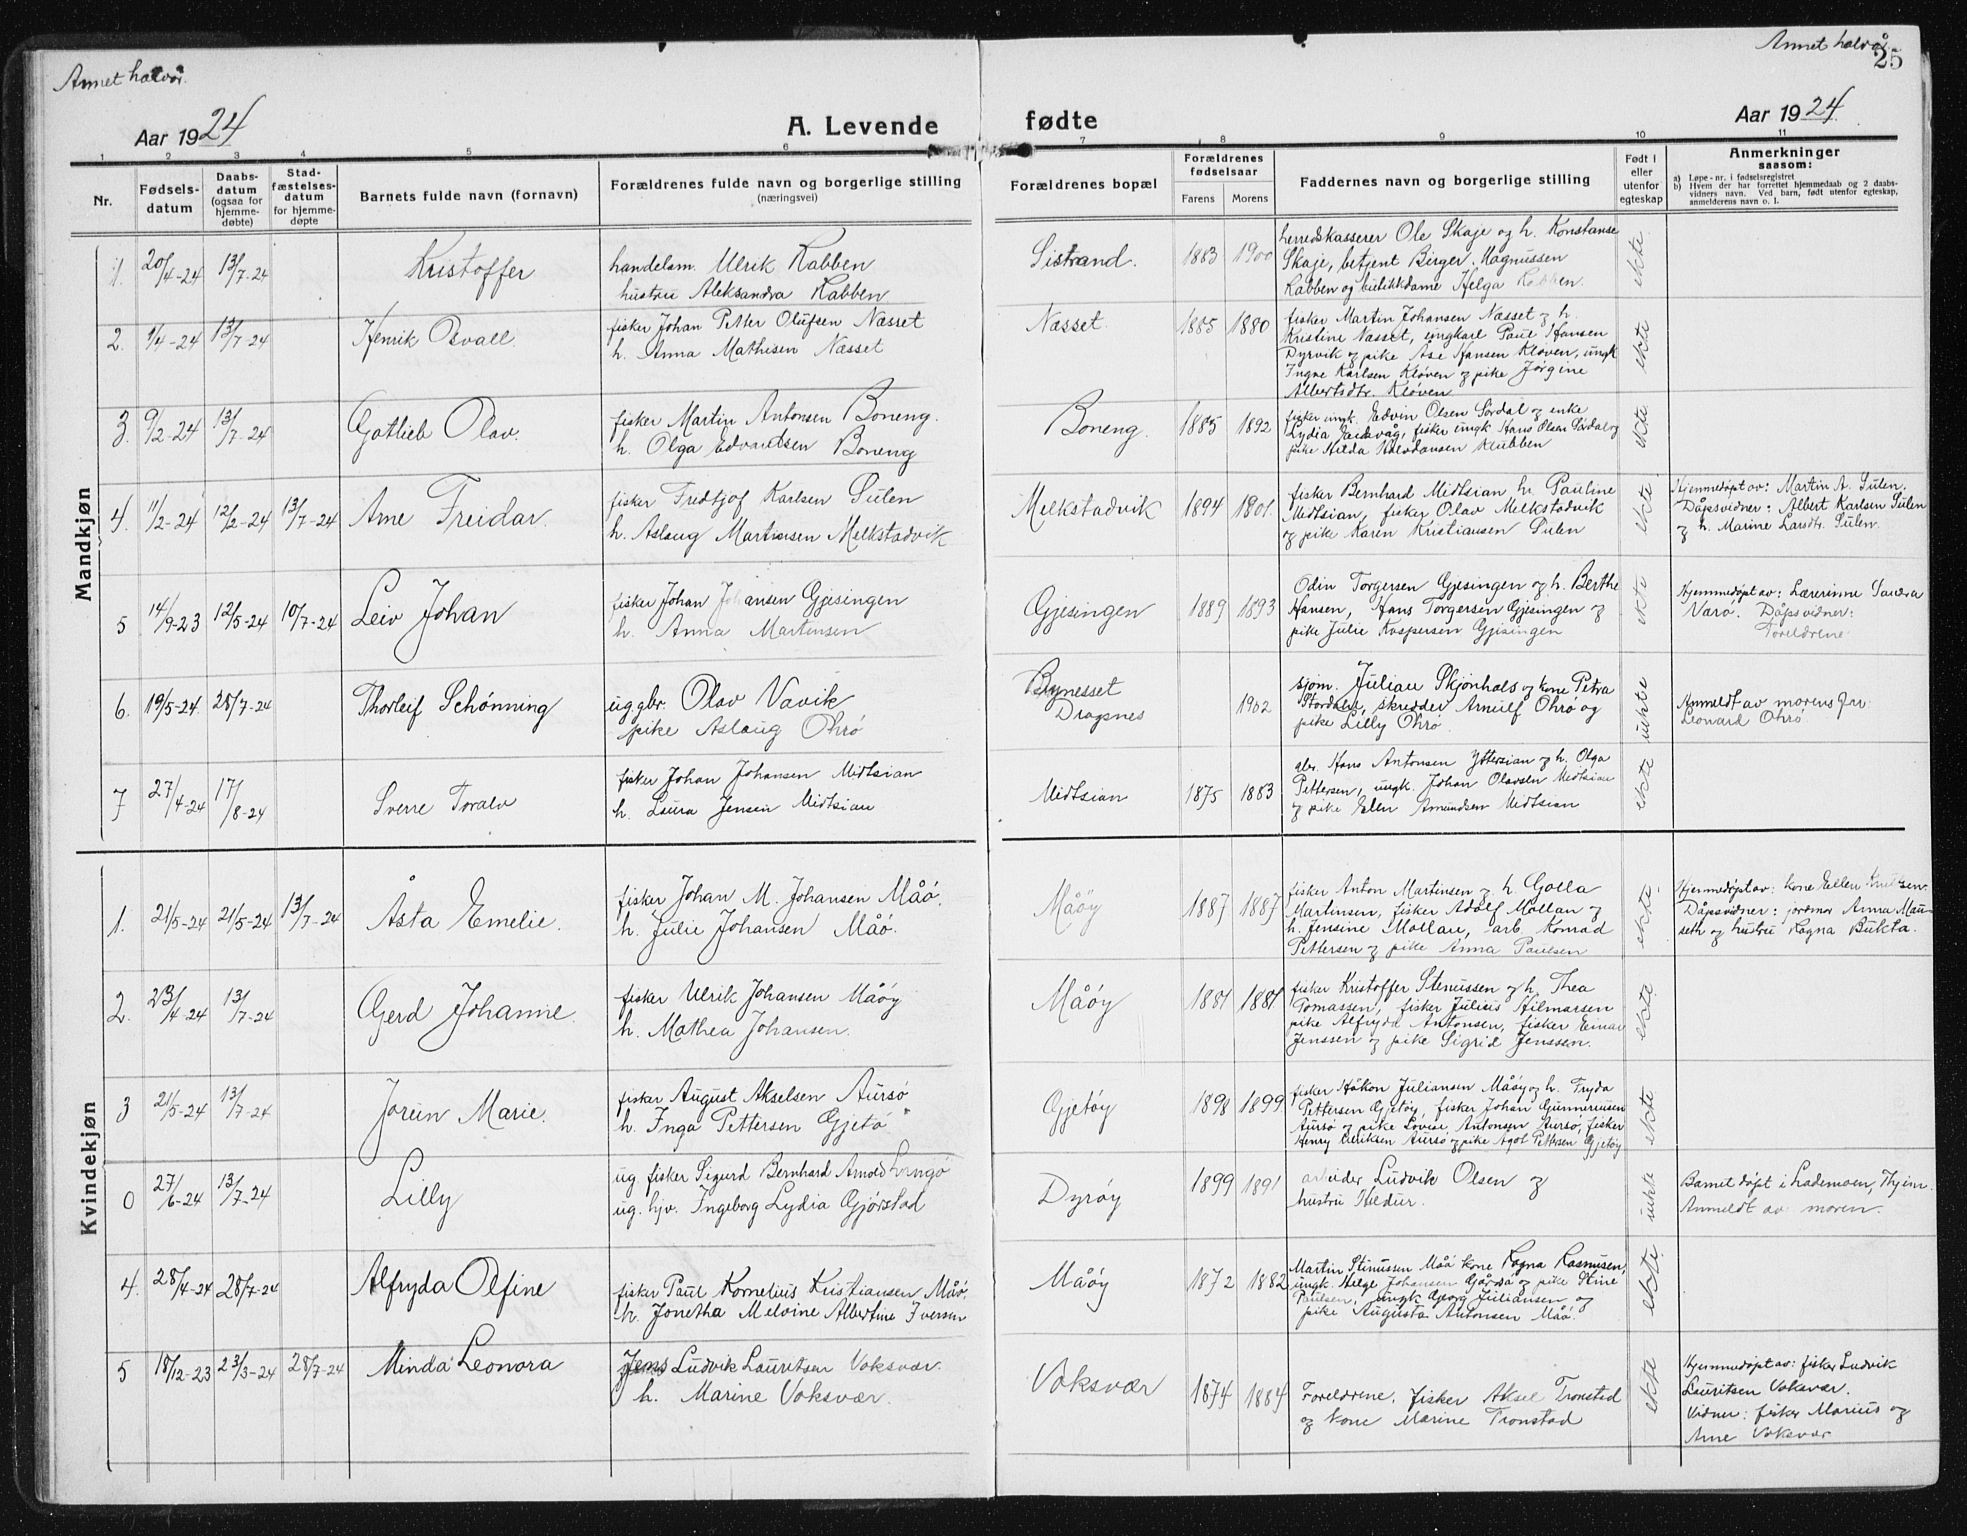 Annet halvår.
Annet halvår
25
Aar 1924
A. Levende fødte
Aar 1924
1 2 3 4 5 6 7 8 9 10 11
Nr.
Fødsels-
datum
Daabs-
datum
(ogsaa for
hjemme-
døbte)
Stad-
fæstelses-
datum
for hjemme-
døpte
Barnets fulde navn (fornavn)
Forældrenes fulde navn og borgerlige stilling
(næringsvei)
Forældrenes bopæl
Forældrenes
fødselsaar
Farens Morens
Faddernes navn og borgerlige stilling
Født i
eller
utenfor
egteskap
Anmerkninger
saasom:
a) Løpe-nr. i fødselsregistret
b) Hvem der har forrettet hjemmedaab og 2 daabs-
vidners navn. Ved barn, født utenfor egteskap,
anmelderens navn o. l.
Mandkjøn
1. 20/4-24 13/7-24 Kristoffer
handelsm. Ulrik Kabben
hustru Aleksandra Kabben
Sistrand. 1883 1900
herredskasserer Ole Skaje og h. Konstanse
Skaje, betjent Birger Magnussen
Kabben og butikkdame Helga Kabben.
ekte
2. 9/4-24 13/7-24 Henrik Osvall.
fisker Johan Petter Olufsen Næsset
h. Anna Mathisen Næsset
Næsset. 1885 1880
fisker Martin Johansen Næsset og h.
Kristine Næsset, ungkarl Paul Hansen
Dyrvik og pike Åse Hansen Kløven, ungk
Ingve Karlsen Kløven og pike Jørgine
Albertsdtr. Kløven
ekte
3. 9/2-24 13/7-24 Gotlieb Olav.
fisker Martin Antonsen Boneng.
h. Olga Edvardtsen Boneng
Boneng. 1885 1892
fisker ungk. Edvin Olsen Sørdal og enke
Lydia Eidsvåg, fisker ungk Hans Olsen Sørdal og
pike Hilda Halvdansen Klubben
ekte
4. 11/2-24 12/2-24 13/7-24 Arne Freidar.
fisker Fredtjof Karlsen Sulen
h. Aslaug Martinsen Melkstadvik
Melkstadvik 1894 1901.
fisker Bernhard Midtsian, h. Pauline
Midtsian, fisker Olav Melkstadvik
og pike Karen Kristiansen Sulen
ekte
Hjemmedøpt av: Martin A. Sulen.
Dåpsvidner: Albert Karlsen Sulen
og h. Marine Larsdtr. Sulen.
5 14/9-23 12/5-24 10/7-24 Leiv Johan
fisker Johan Johansen Gjesingen
h. Anna Martensen
Gjesingen 1889 1893
Odin Torgersen Gjesingen og h. Berthe
Hansen, Hans Torgersen Gjesingen og
pike Julie Kaspersen Gjisingen
ekte
Hjemmedøpt av: Lærerinne Sandra
Varø. Dåpsvidner:
Foreldrene.
6. 19/5-24 28/7-24 Thorleif Schønning
ug. gbr. Olav Vavik
pike Aslaug Ohrø
Bynesset
Dragsnes
1902
sjøm. Julian Skjønhals og kone Petra
Størdalen, skredder Arnulf Ohrø og
pike Lilly Ohrø.
uekte
Anmeldt av morens far
Leonard Ohrø.
7 27/4-24 17/8-24 Sverre Toralv
fisker Johan Johansen Midtsian
h. Laura Jensen Midtsian
Midtsian 1875 1883
gbr. Hans Antonsen Yttersian og h. Olga
Pettersen, ungk. Johan Olavsen Midtsian
og pike Ellen Amundsen Midtsian
ekte
Kvindekjøn
1. 21/5-24 21/5-24 13/7-24 Åsta Emelie.
fisker Johan M. Johansen Måø.
h. Julie Johansen Måø.
Måøy 1887 1887
fisker Anton Martinsen og h. Golla
Martinsen, fisker Adolf Mollan og
h. Jensine Mollan, arb. Konrad
Pettersen og pike Anna Paulsen
ekte
Hjemmedøpt av: kone Ellen Knutsen.
Dåpsvidner: jordmor Anna Mau-
seth og hustru Ragna Bukta.
2. 23/4-24 13/7-24 Gjerd Johanne.
fisker Ulrik Johansen Måøy
h. Mathea Johansen.
Måøy 1881 1881
fisker Kristoffer Stenussen og h. Thea
Tomassen, fisker Julius Hilmarsen
pike Alfryda Antonsen, fisker Einar
Jenssen og pike Sigrid Jenssen.
ekte
3 21/5-24 13/7-24 Jorun Marie.
fisker August Akselsen Aursø
h. Inga Pettersen Gjetø
Gjetøy 1898 1899
fisker Håkon Juliansen Måøy og h. Fryda
Pettersen Gjetøy, fisker Johan Gunneriusen
Aursø og pike Lovise Antonsen Aursø, fisker
Henry Ulriksen Aursø og pike Agot Pettersen Gjetøy
ekte
0 27/6-24 13/7-24 Lilly
ug fisker Sigurd Bernhard Arnolds Langø
ug. hjv. Ingeborg Lydia Gjørstad
Dyrøy 1899 1891
arbeider Ludvik Olsen og
hustru Hildur.
uekte
Barnet døpt i Lademoen, Thjem.
Anmeldt av moren.
4. 28/4-24 28/7-24 Alfryda Olfine
fisker Paul Kornelius Kristiansen Måø.
h. Jonetha Melvine Albertine Iversen
Måøy 1872 1882
Martin Stinussen Måø kone Ragna Rasmusen,
ungk. Helge Johansen Gårdsø og pike Stine
Paulsen, ungk Georg Juliansen og
pike Augusta Antonsen Måø.
ekte
5 18/12-23 23/3-24 28/7-24 Minda Leonora
Jens Ludvik Lauritsen Voksvær.
h. Marine Voksvær.
Voksvær 1874 1884
Foreldrene, fisker Aksel Tronstad
og kone Marine Tronstad
ekte
Hjemmedøpt av: fisker Ludvik
Lauritsen Voksvær.
Vidner: fisker Marius og
Arne Voksvær